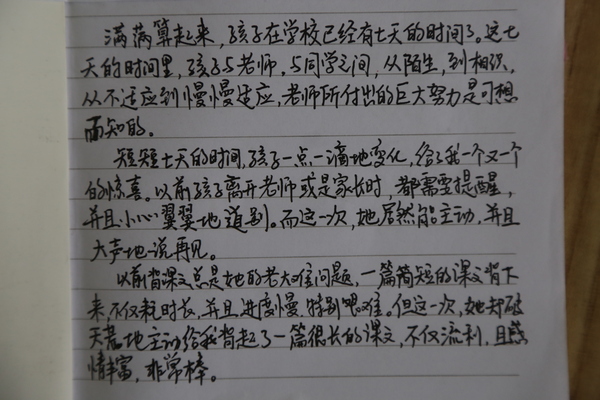 满满算起来，孩子在学校已经有七天的时间了。这七
天的时间里，孩子与老师，与同学之间，从陌生，到相识，
从不适应到慢慢适应，老师所付出的巨大努力是可想
而知的。
短短七天的时间，孩子一点一滴地变化，给了我一个又一个
的惊喜。以前孩子离开老师或是家长时，都需要提醒，
并且小心翼翼地道别。而这一次，她居然能主动，并且
大声地说再见。
以前背课文总是她的老大难问题，一篇简短的课文背下
来，不仅耗时长，并且进度慢，特别艰难。但这一次，她却破
天荒地主动给我背起了一篇很长的课文，不仅流利，且感
情丰富，非常棒。